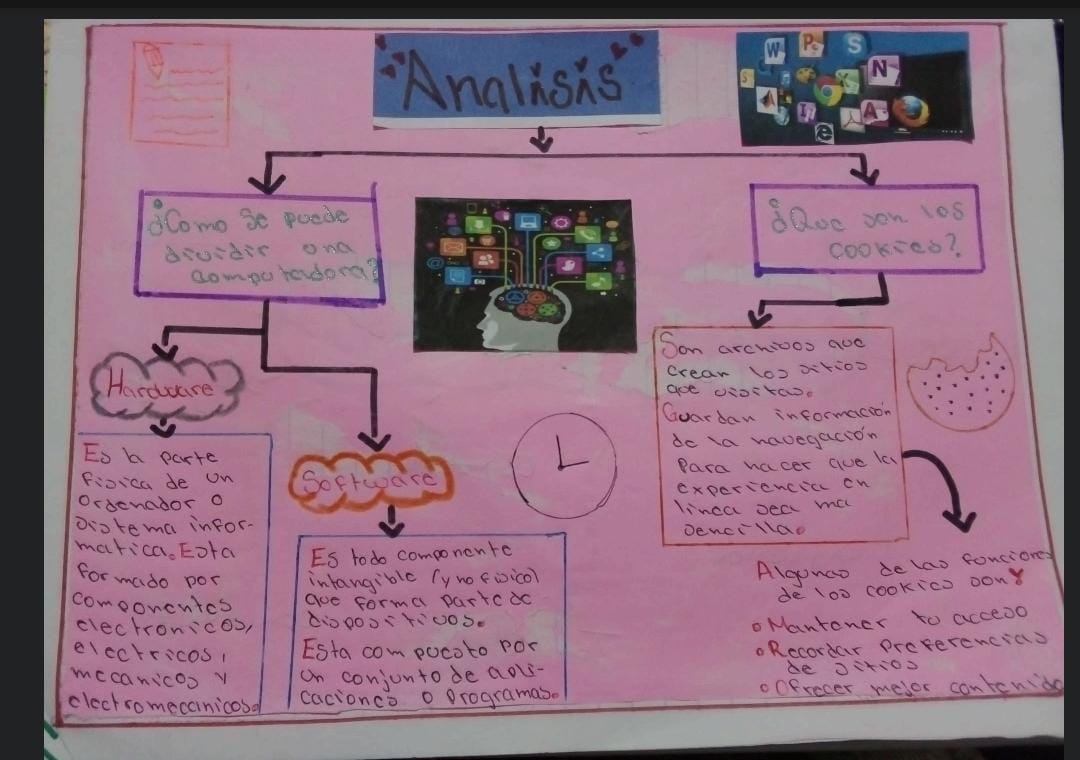 Analisis
¿Como se puede
dividir una
computadora?
¿Que son los
cookies?
Hardware
Es la parte
fisica de un
ordenador o
sistema infor-
matica. Esta
formado por
componentes
electronicos,
electricos,
mecanicos y
electromecanicos.
Software
Es todo componente
intangible (y no fisico)
que forma parte de
dispositivos.
Esta compuesto por
un conjunto de apli-
caciones o programas.
Son archivos que
crean los sitios
que visitas.
Guardan información
de la navegación
para hacer que la
experiencia en
línea sea ma
sencilla.
Algunas de las funciones
de los cookies son:
Mantener tu acceso
Recordar Preferencias
de sitios
Ofrecer mejor contenido